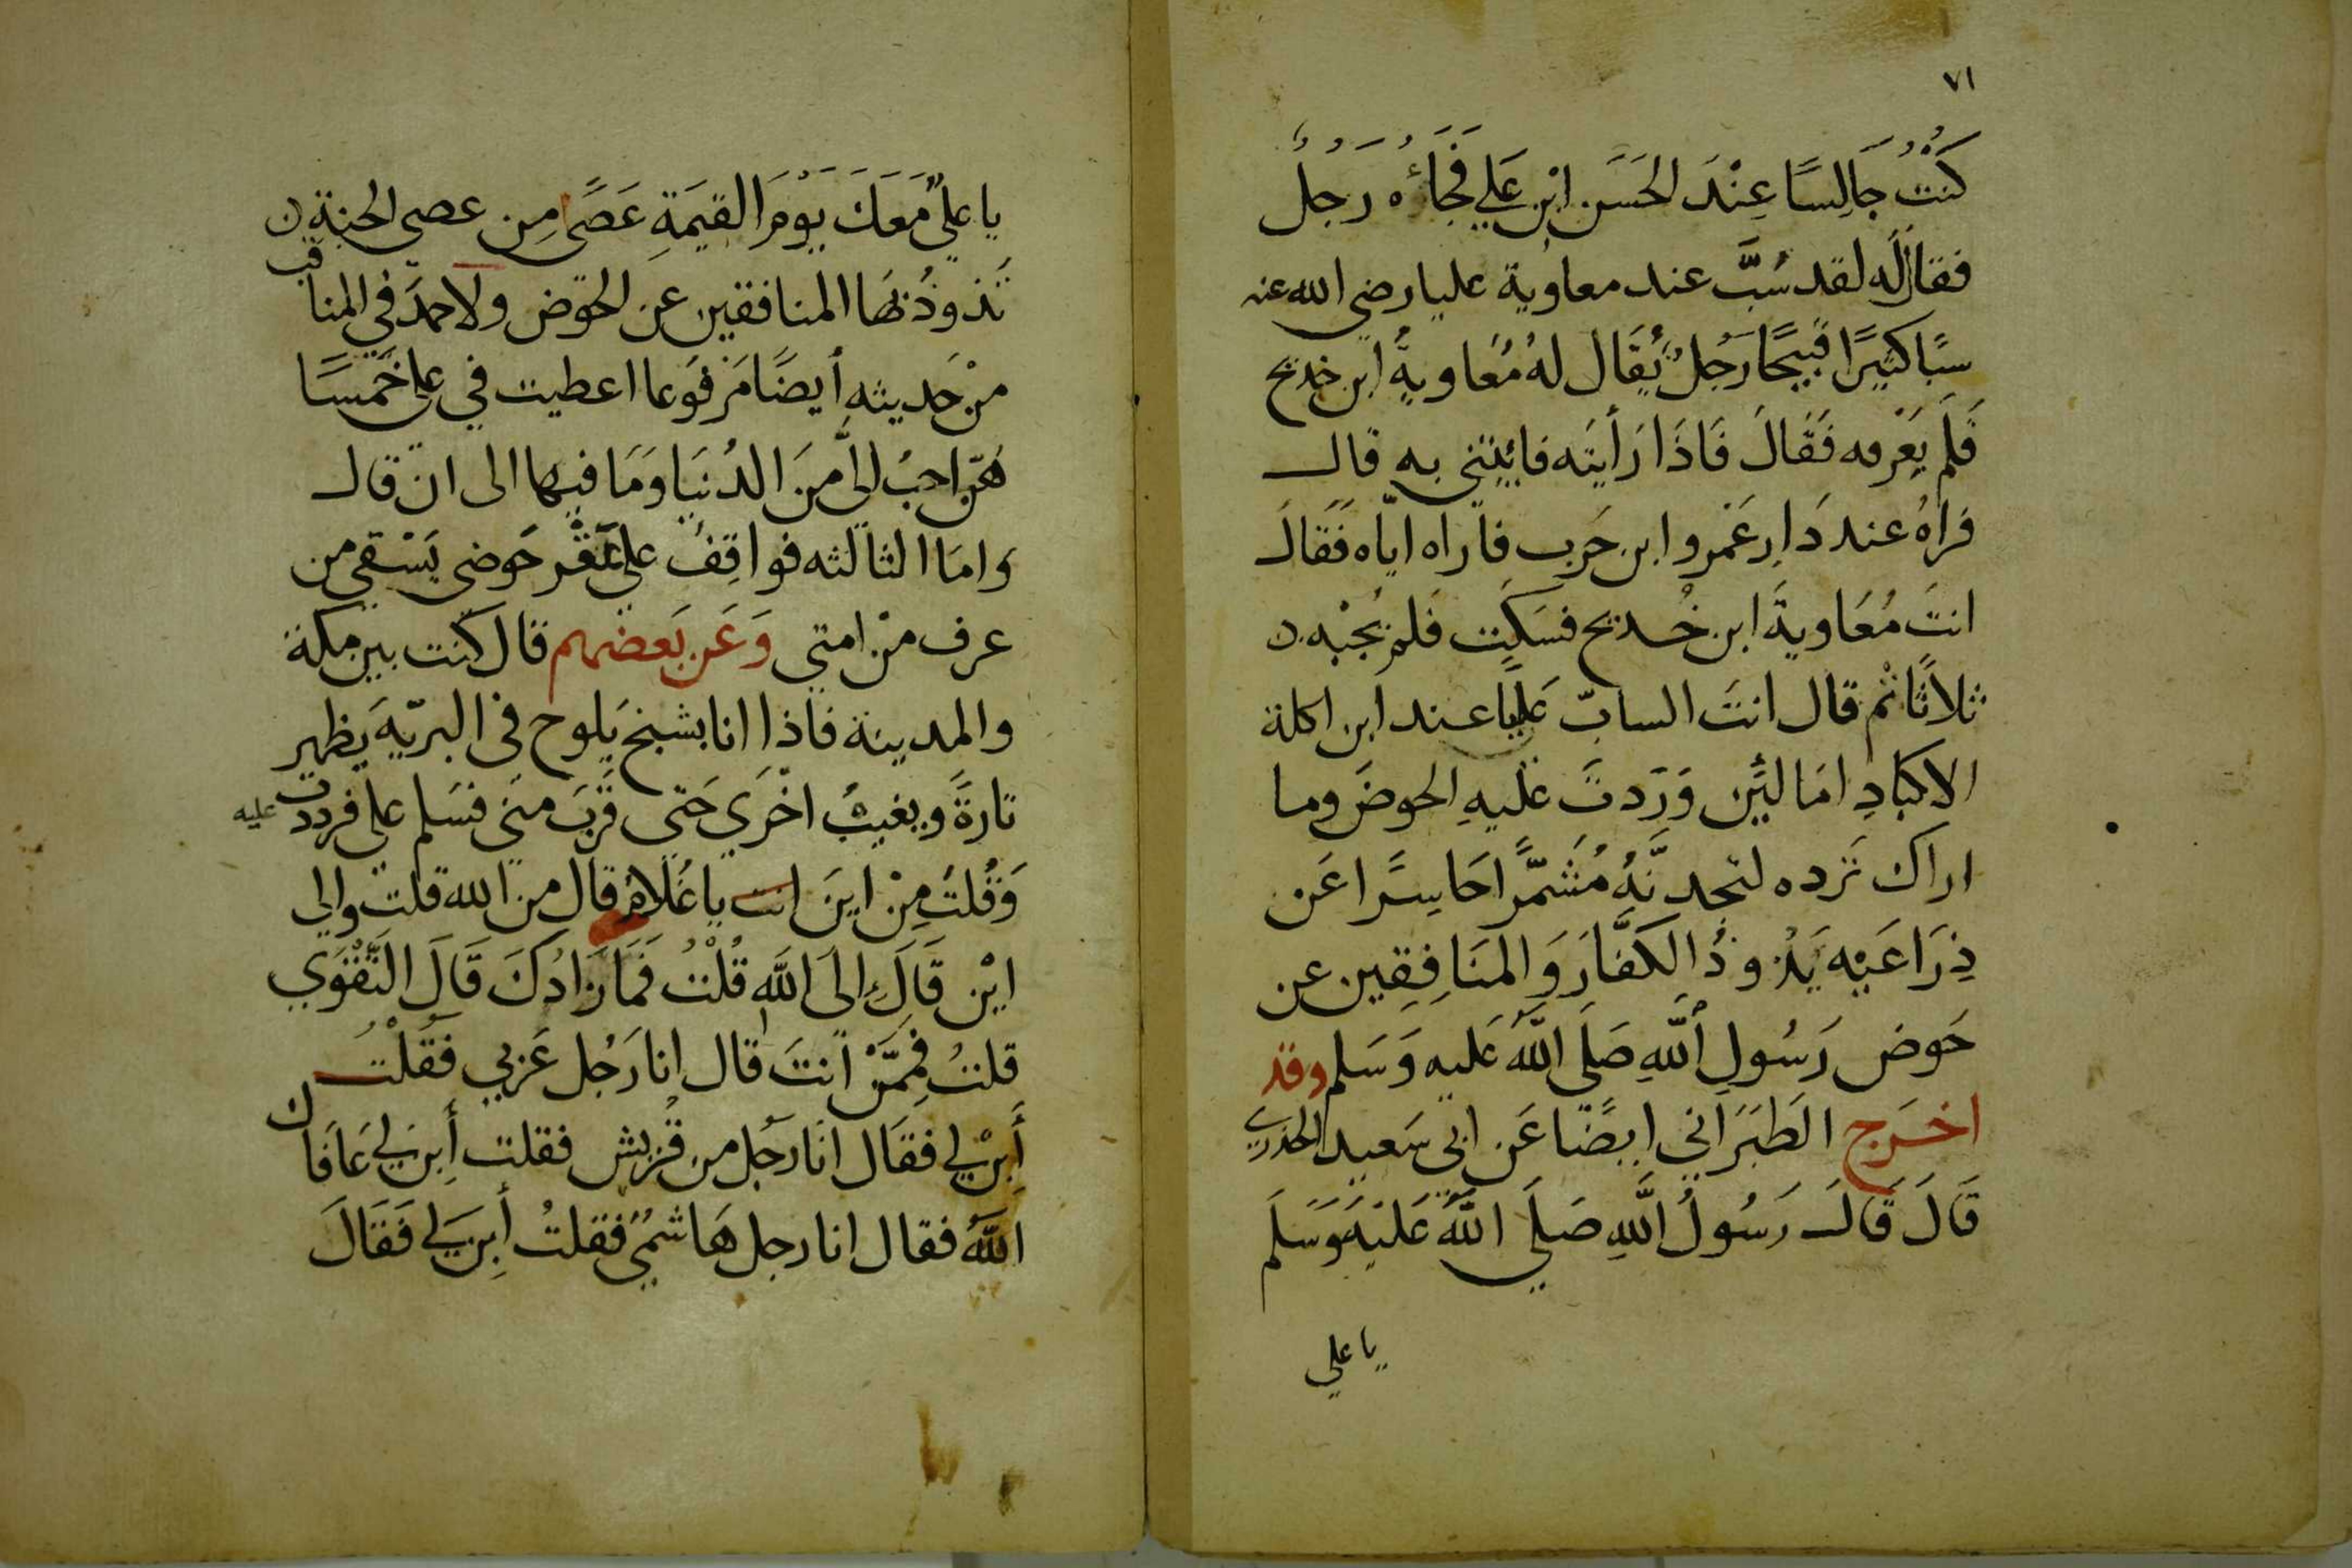 ٧١
كُنْتُ جَالِسًا عِنْدَ الحَسَن ابْنِ عَلي فَجَاءَهُ رَجُلٌ
فقال له لقد سَبَّ عند معاوية عليا رضي الله عنه
سبًا كثيرًا قبيحًا رَجُلٌ يُقَال لهُ مُعَاوية ابن خديج
فَلَم يَعْرفه فَقَالَ فَاذَا رَأيتَه فائتني به قال
فراهُ عند دَارِ عَمرو ابن حَرب فاراه اياه فَقَالَ
انتَ مُعَاوية ابن خُديج فسَكت فَلم يُجْبه
ثلاثًا ثم قال انتَ السابّ عَليًا عند ابن اكلة
الاكبَادِ امَا لَئِن وَرَدتَ عَليهِ الحوضَ وما
اراك تَرده لتجدنَّهُ مُشَمّرًا حَاسِرًا عَن
ذِرَاعَيه يَذُوذُ الكفَّارَ وَالمنَافِقِين عن
حَوض رَسُولِ اللهِ صَلَى اللهُ عَليه وَسَلم وقد
اخرَج الطَبَرَاني ايضًا عَن ابي سَعيد الخدري
قَالَ قَالَ رَسُولُ اللهِ صَلَى اللهُ عَليْهِ وَسَلَم
يا علي
يا علي مَعَكَ يَوْمَ القيمَةِ عَصًى مِن عصي الجنة
تَذوذُ بهَا المنافقين عن الحَوض ولاحمدَ في المناقب
منْ حَديثه أيضًا مَرفوعا اعطيت في علي خَمسًا
هُنّ احبُ اليَّ منَ الدُنيَا وَمَا فيها الى ان قال
وامَا الثالثه فواقِف على عقْر حَوضي يَسْقي من
عرف منْ امتي وَعَن بَعضهم قال كنت بين مكة
والمدينة فاذا انا بشيخ يَلوح في البريّه يَظهر
تارةً ويغيبُ اخْرَي حَتى قَرُبَ منى فسَلم علي فرددت عليه
وَقُلتُ مِنْ اينَ انت يا غُلامُ قال من الله قلت والي
ايْن قَالَ إلىَ الله قُلْتُ فَمَا زَادُكَ قَالَ التَّقْوَي
قلتُ فمِمَّنْ انتَ قال انا رَجُل عَربي فقُلْتُ
أَبِنْ لي فقَال انَا رَجُل من قُرَيش فقلت أبِن لي عَافَاك
اللهُ فقال انا رجل هَاشميٌ فقلتُ أبِن لي فَقَالَ